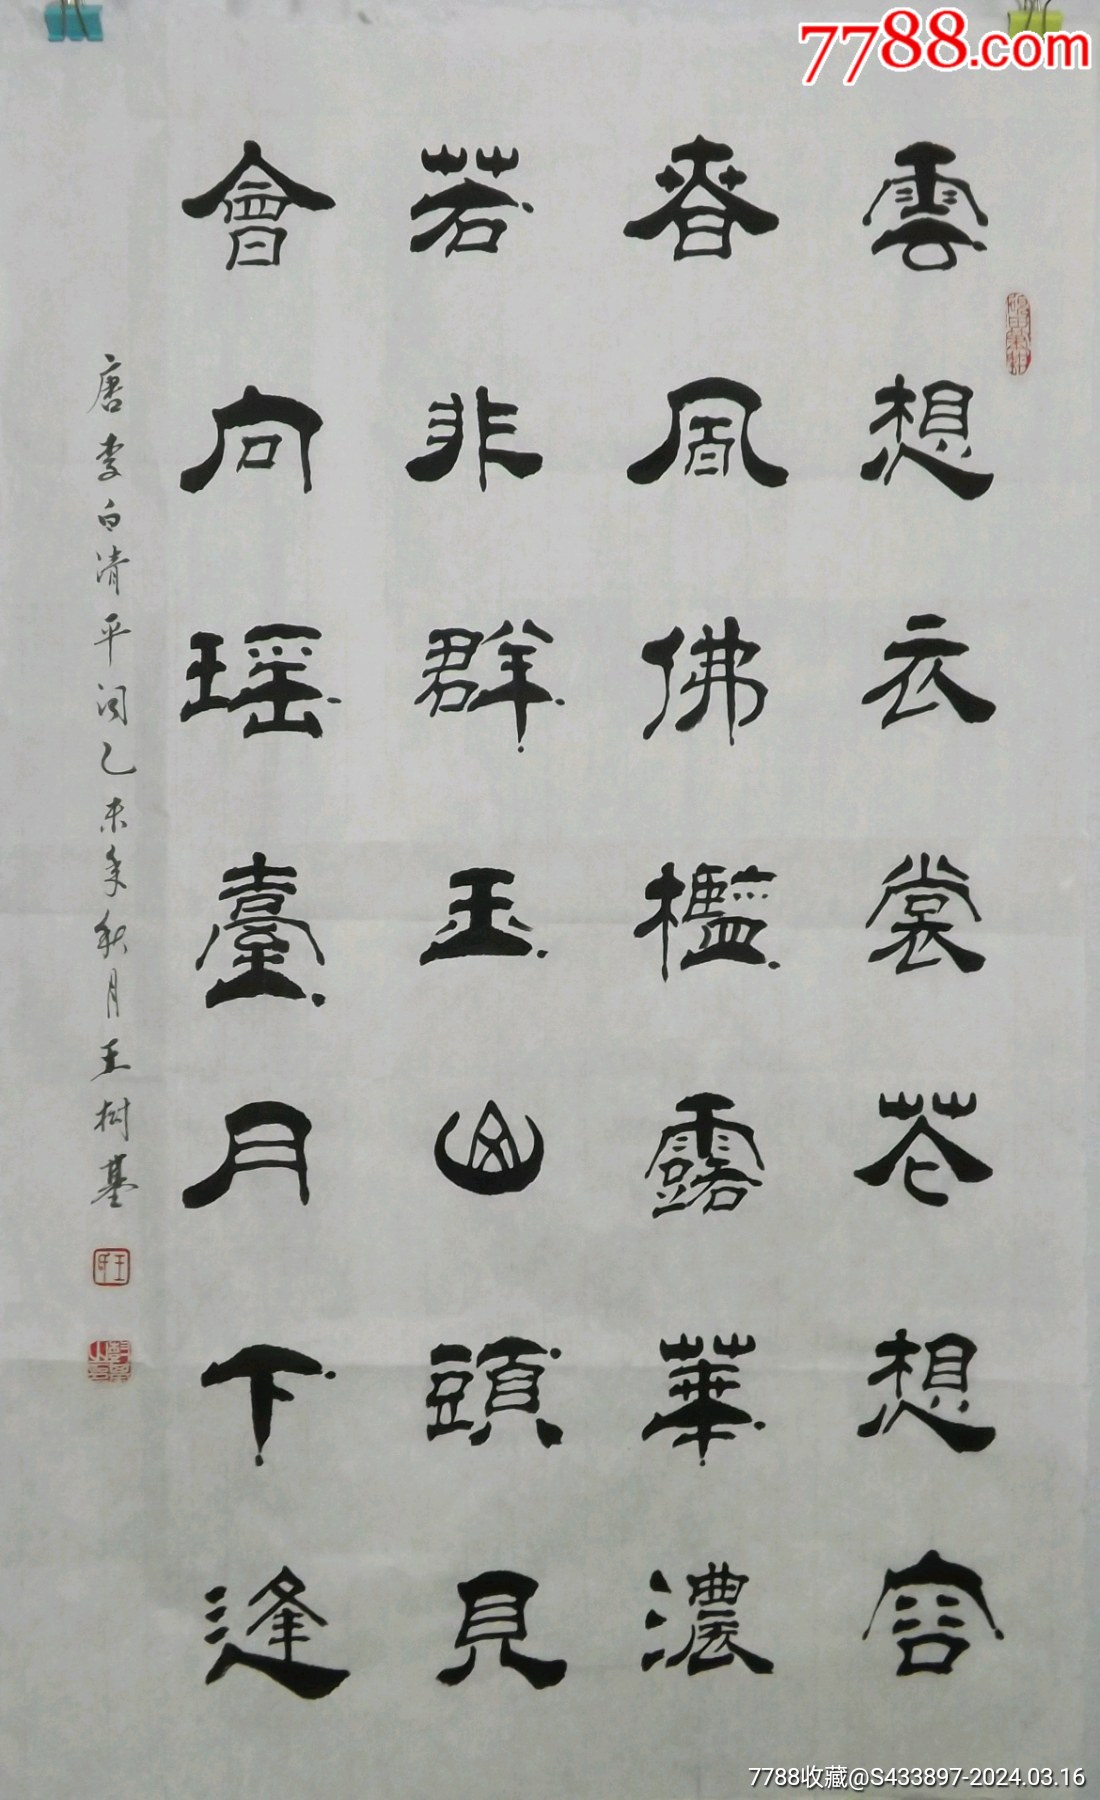 7788.com
雲想衣裳花想容
春風佛檻露華濃
若非群玉山頭見
會向瑶臺月下逢
唐李白清平词乙未年秋月王樹基
7788收藏@S433897-2024.03.16